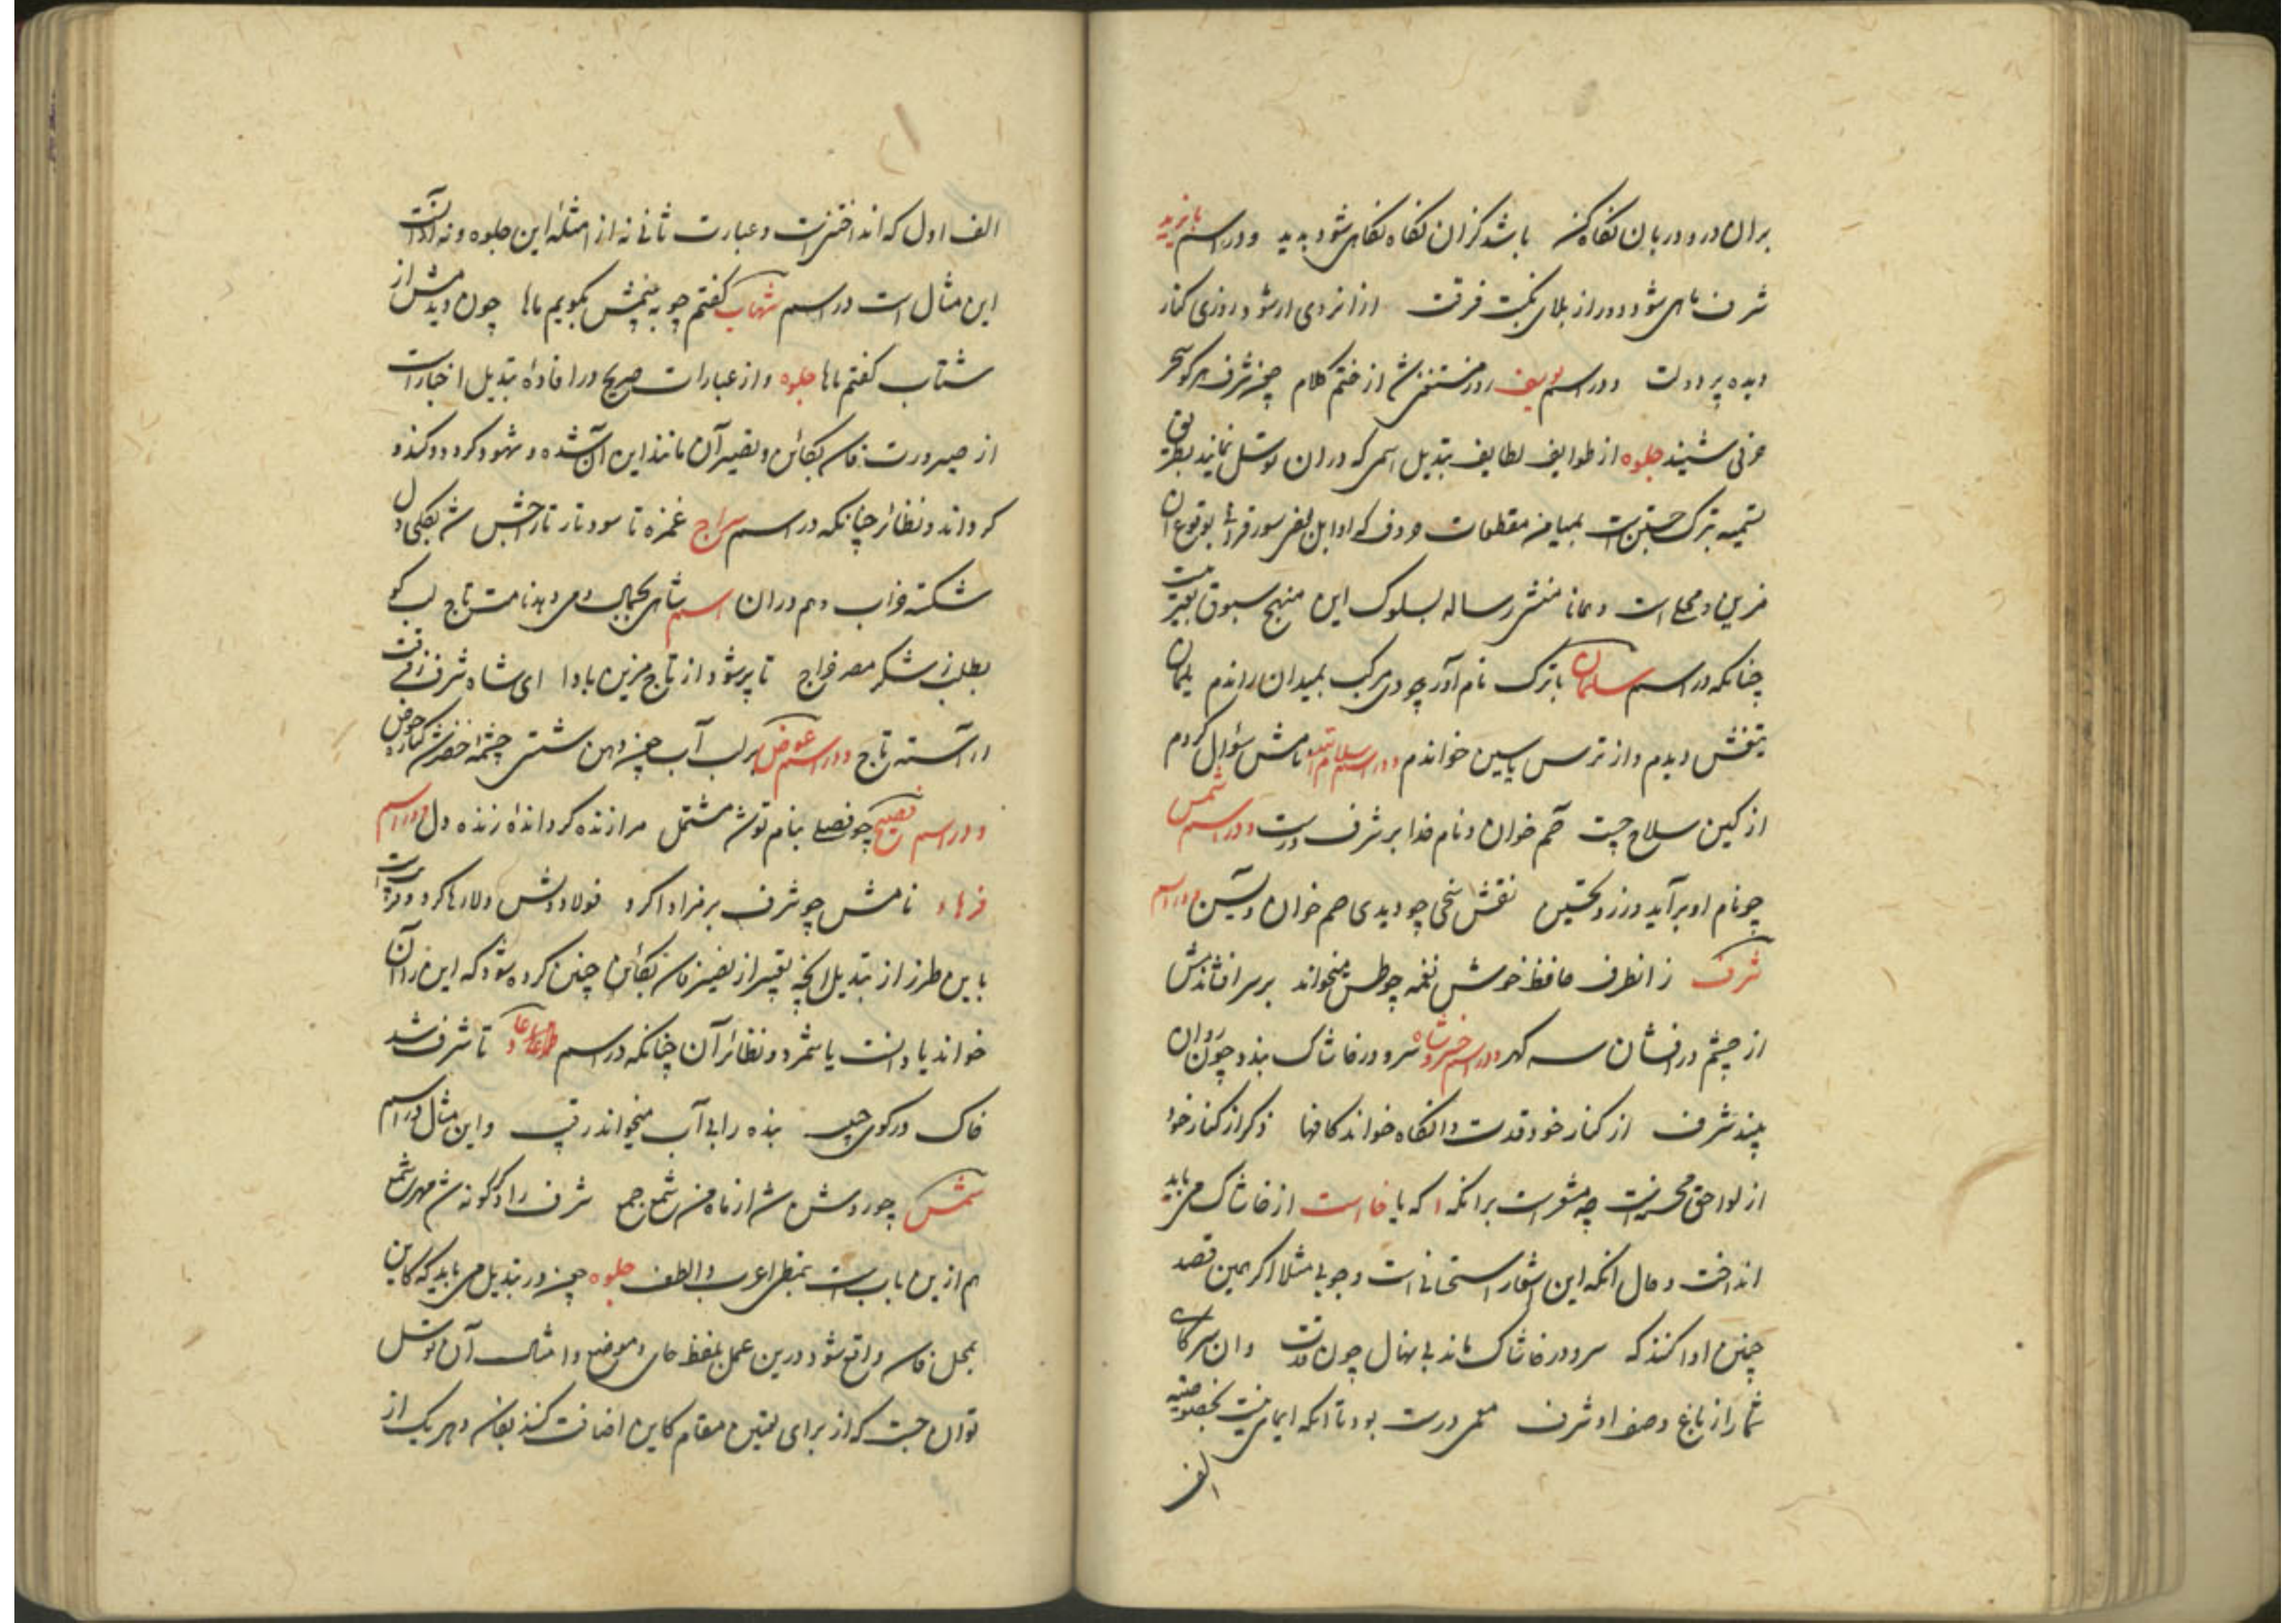 بران در و دربان نگاه کن باشد کزان نگاه نگاهی شود پدید و در اسم بایزید
شرف ماهی شود دور از بلای نکبت فرقت از انروی ار شود روزی کنار
دیده پر دولت و در اسم یوسف از ختم کلام چون شرف هر کو سحر
جلوه از طوایف لطایف تبدیل اسمی که در ان توسل نمایند بطریق
تسمیه بترک جستن است بمیامن مقطعات حروف که اوایل بعض سور قرآنی بوقوع ان
مزین و محلی است و همانا منشی رساله بسلوک این منهج مسبوق بغیر نیست
چنانکه در اسم سلمان با ترک نام آور چو دی مرکب بمیدان راندم یلمان
بتغش دیدم و از ترس یاسین خواندم و در اسم نامش سؤال کردم
از کین سلاح جست حم خوان و نام خدا بر شرف درست و در اسم شمس
چو نام او برآید در زد تحسین نقش سخی چو دیدی حم خوان و یسین و در اسم
شرف زانطرف حافظ خوش نغمه چو طس میخواند بر سر افشاندش
از چشم در افشان سه گهر و در اسم خسرو شاه سرو در خاشاک بند و چون روان
بیند شرف از کنار خود قدت وانگاه خواند کافها ذکر از کنار خود
از لواحق محسنه است چه مشعر است برانکه ا که با خا است از خاشاک می باید
انداخت و حال انکه این اشعار استحسانی است و جوبی مثلا اگر همین قصد
چنین ادا کنند که سرو در خاشاک ماند بی نهال چون قدت وان سر کای
شمار از باغ وصف او شرف معمی درست بود تا انکه ایمایی نیست بخصوصیه
الف
الف اول که انداختنی است و عبارت ثانی نه از امثلهٔ این جلوه و نه از انست
این مثال است در اسم شهاب گفتم چو به بینمش بگویم ماها چون دیدمش از
شتاب گفتم ماها جلوه و از عبارات صریح در افادهٔ تبدیل اخبار است
از صیرورت فاسد بکائن و تصییر آن مانند این آن شده و شود و کرد و کند و
گرداند و نظائر چنانکه در اسم سراج غمزه تا سود تار تاراجش شد بکلی دل
شکسته خراب و هم در ان اسم شاهی بکمال و می دهد نامت تاج لب کو
بطلب ز شکر مصر خراج تا پر شود از تاج مزین بادا ای شاه شرف زفرقت
اراسته تاج و در اسم عوض بر لب آب چون دهن شستی چشمهٔ خضر شد کنارهٔ حوض
و در اسم فصیح چو فصلی بنام تو شد مشتمل مرا زنده گرداندهٔ زنده دل و در اسم
فرهاد نامش چو شرف بر فراد ا کرد فولاد دلش دلار ها کرد و مرتبت است
باین طرز از تبدیل انچه تعبیر از تصییر فاسد بکائن چنین کرده شود که این را آن
خواند یا دانست یا شمرد و نظائر آن چنانکه در اسم تا شرف شد
خاک در کوی حبیب بنده را بی آب میخواند رقیب و این مثال در اسم
شمس چو روشن شد از ماه من شمع جمع شرف را دگرگونه شد مهر شمع
هم ازین باب است بنمطی اغرب و الطف جلوه چون در تبدیل می باید که کاین
بمحل فاسد واقع شود درین عمل بلفظ جای و موضع و امثال آن توسل
توان جست که از برای تعیین مقام کاین اضافت کنند بفاسد و هر یک از